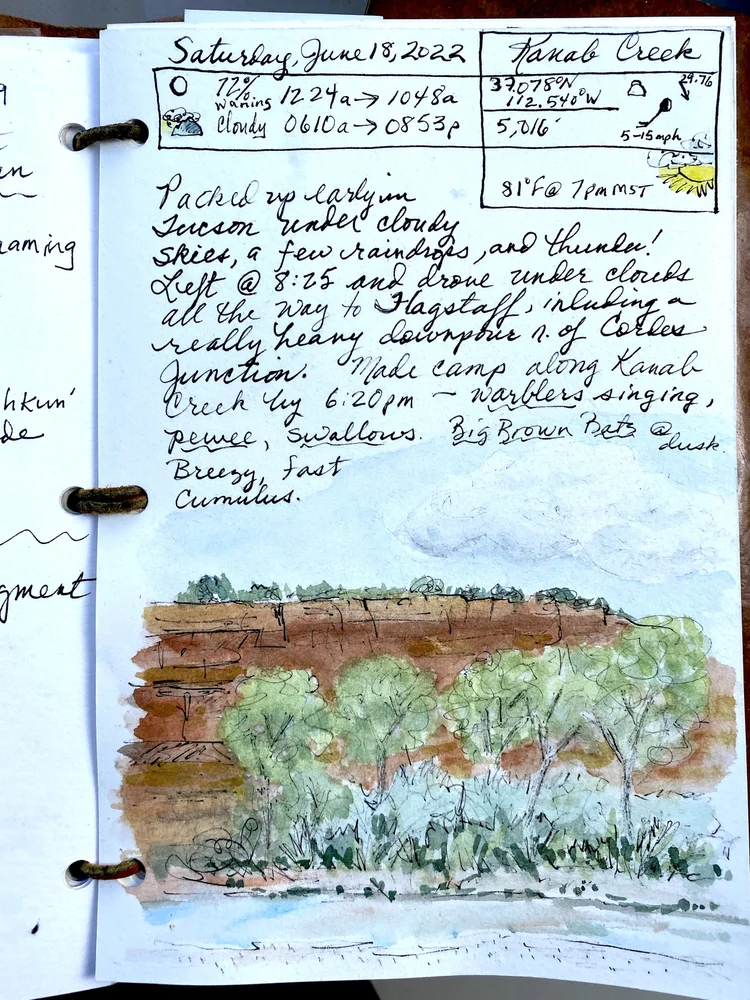 Saturday, June 18, 2022
Kanab Creek
72% waning 1224a → 1048a
cloudy 0610a → 0853p
37.078°N
112.540°W
29.76
5,016'
5-15mph
81°F @ 7pm MST
Packed up early in
Tucson under cloudy
skies, a few raindrops, and thunder!
Left @ 8:25 and drove under clouds
all the way to Flagstaff, inluding a
really heavy downpour n. of Cordes
Junction. Made camp along Kanab
Creek by 6:20pm - warblers singing,
pewee, swallows. Big Brown Bats @ dusk.
Breezy, fast
Cumulus.
9
en
aming
hkun'
de
gment